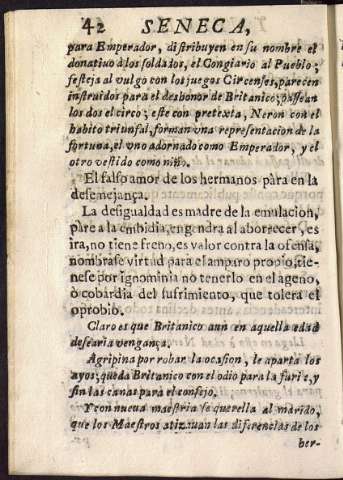 42 SENECA,
para Emperador, distribuyen en su nombre el
donativo à los soldados, el Congiario al Pueblo;
festeja al vulgo con los juegos Circenses, parecen
instruidos para el desbonor de Britanico; passean
los dos el circo; este con pretexta, Neron con el
habito triunfal, forman vna representacion de la
fortuna, el vno adornado como Emperador, y el
otro vestido como niño.
El falso amor de los hermanos pàra en la
desemejança.
La desigualdad es madre de la emulacion,
pàre a la embidia, engendra al aborrecer, es
ira, no tiene freno, es valor contra la ofensa,
nombrase virtud para el amparo propio, tie-
nese por ignominia no tenerlo en el ageno,
ò cobardia del sufrimiento, que tolera el
oprobio.
Claro es que Britanico aun en aquella edad
desearia vengança.
Agripina por robar la ocasion, le aparta los
ayos; queda Britanico con el odio para la furia, y
sin las canas para el consejo.
Y con nueva maestria se querella al marido,
que los Maestros atizauan las diferencias de los
her-